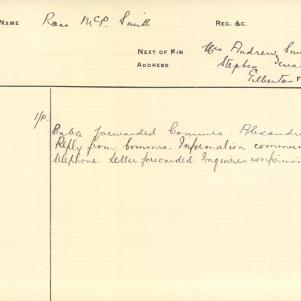 NAME Ross McP. Smith REG. &C.
NEXT OF KIN Mrs Andrew Smi
ADDRESS Stephen Terra
Gilberton
1/p.
Cable forwarded Commrs. Alexandri
Reply from Commrs. Information commun
telephone. Letter forwarded Inquirer confirmi